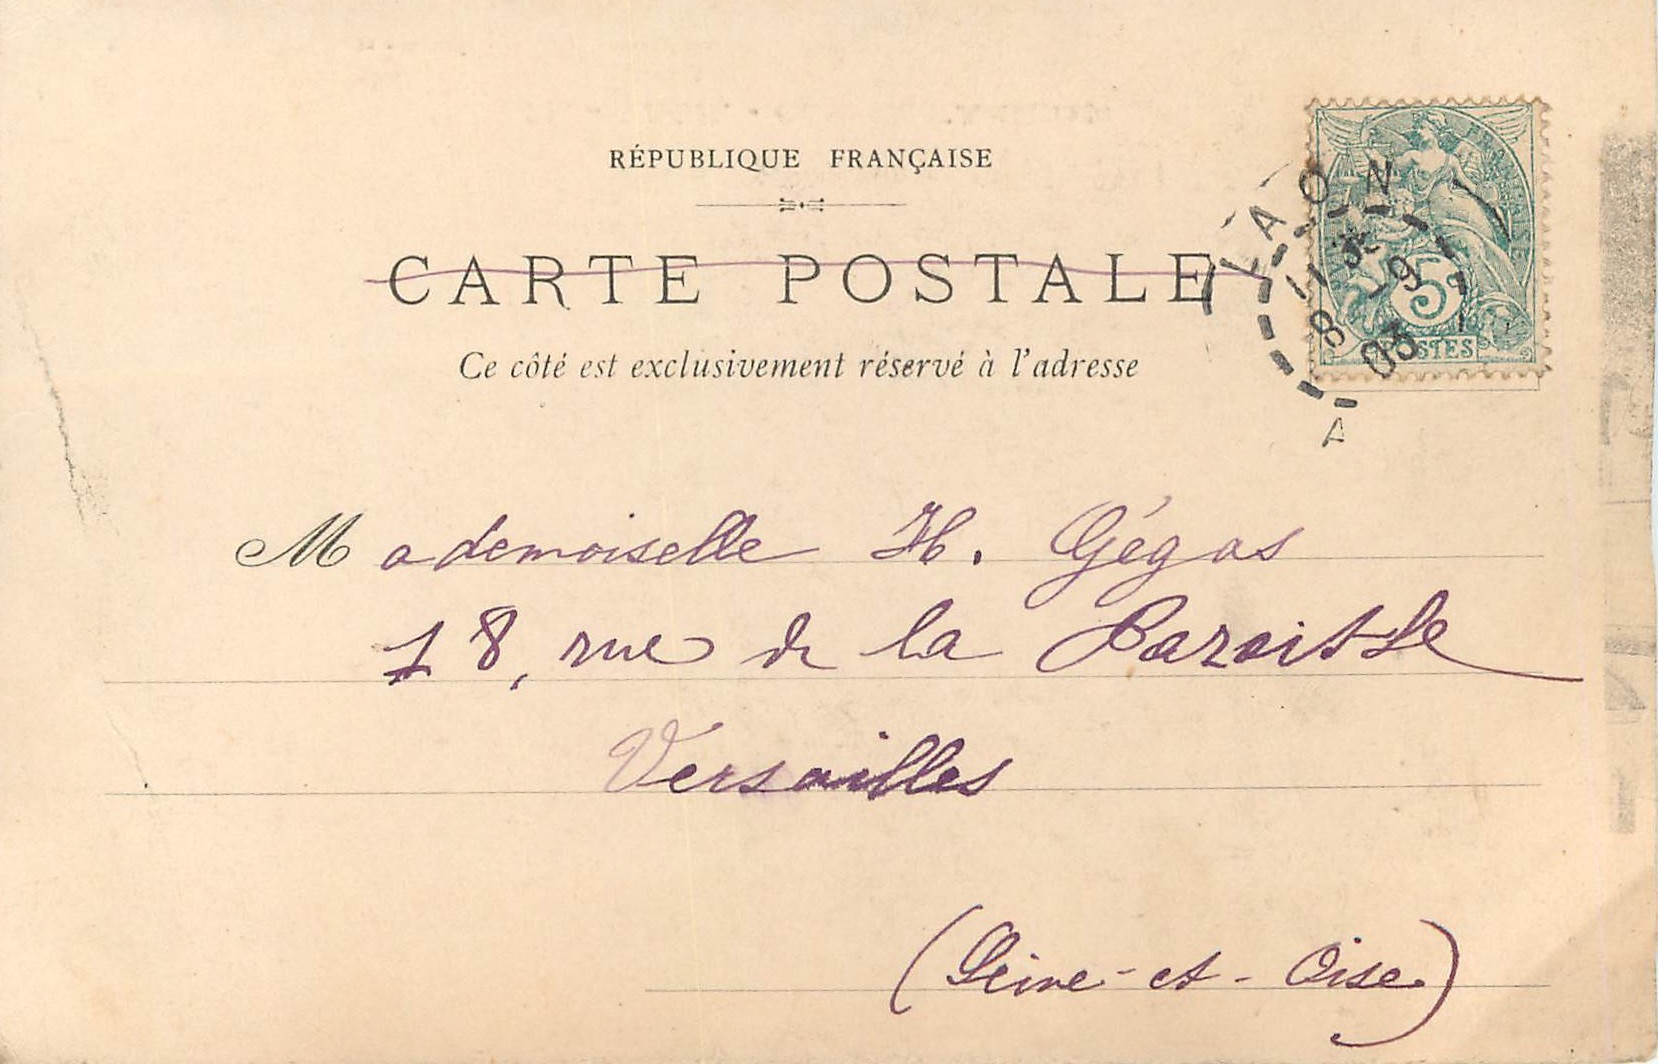 RÉPUBLIQUE FRANÇAISE
CARTE POSTALE
Ce côté est exclusivement réservé à l'adresse
LAON
8
9
03
5
POSTES
Mademoiselle H. Gégas
18, rue de la Paroisse
Versailles
(Seine-et-Oise)